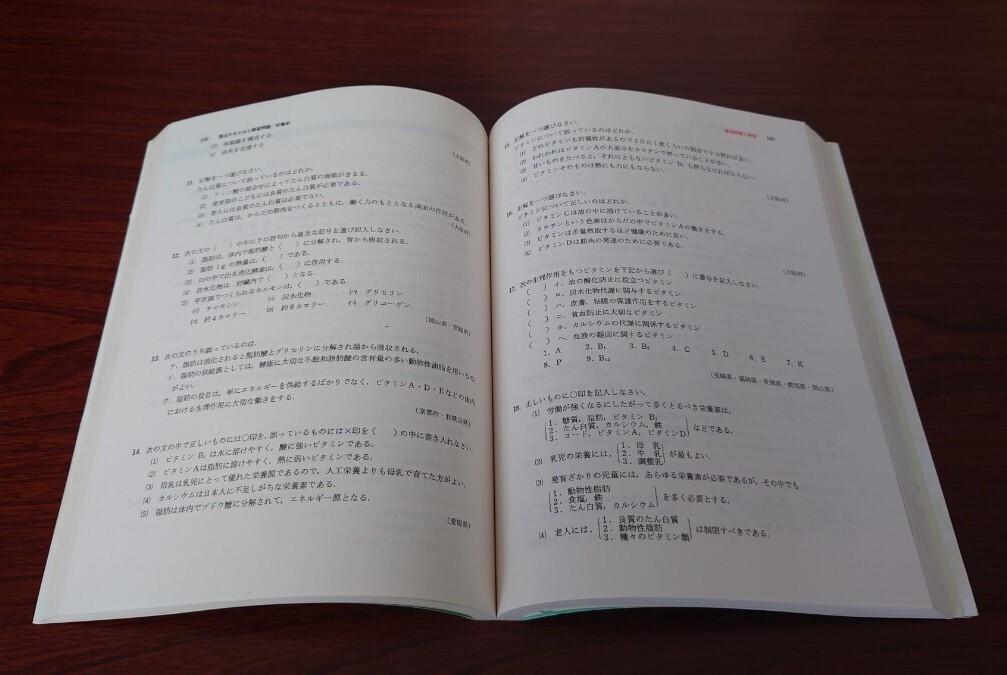 (2) 体組織を構成する
(3) 成長を促進する
(大阪府)
11. 正解を一つ選びなさい.
たん白質について誤っているのはどれか.
(1) アミノ酸の組合せによってたん白質の価値がきまる.
(2) 発育期のこどもには良質のたん白質が必要である.
(3) 老人には良質のたん白質は必要でない.
(4) たん白質は、からだの筋肉をつくるとともに、働く力のもととなる両面の作用がある.
(大阪府)
12. 次の文の( )の中に下の語句から適当な記号を選び記入しなさい.
(1) 脂肪は、体内で脂肪酸と( )に分解され、胃から吸収される.
(2) 脂肪1gの熱量は、( )である.
(3) 口の中で出る消化酵素は、( )に作用する.
(4) 炭水化物は、肝臓内で( )となる.
(5) 甲状腺でつくられるホルモンは、( )である.
(イ) チロキシン (ロ) 炭水化物 (ハ) グリセリン
(ニ) 約4カロリー (ホ) 約9カロリー (ヘ) グリコーゲン
(岡山県・宮崎県)
13. 次の文のうち誤っているのは.
ア. 脂肪は消化されると脂肪酸とグリセリンに分解され腸から吸収される.
イ. 脂肪の供給源としては、健康に大切な不飽和脂肪酸の含有量の多い動物性油脂を用いるの
がよい.
ウ. 脂肪の役目は、単にエネルギーを供給するばかりでなく、ビタミンA・D・Eなどの体内
における生理作用に大切な働きをする.
(京都府・和歌山県)
14. 次の文の中で正しいものには○印を、誤っているものには×印を( )の中に書き入れなさい.
(1) ビタミン B₁ は水に溶けやすく、酸に強いビタミンである.
(2) ビタミンAは脂肪に溶けやすく、熱に弱いビタミンである.
(3) 母乳は乳児にとって優れた栄養源であるので、人工栄養よりも母乳で育てた方がよい.
(4) カルシウムは日本人に不足しがちな栄養素である.
(5) 脂肪は体内でブドウ糖に分解されて、エネルギー源となる.
(愛媛県)
15. 正解を一つ選びなさい.
ビタミンについて誤っているのはどれか.
(1) どのビタミンも貯蔵性があるので3日に1度くらいの割合で十分摂れば良い.
(2) われわれはビタミンAの大部分をカロチンで摂っていることが多い.
(3) 甘いものをたべると、それにともないビタミン B₁ も摂らなければならない.
(4) ビタミンそのものは熱にも力にもならない.
(大阪府)
16. 正解を一つ選びなさい.
ビタミンについて正しいのはどれか.
(1) ビタミンCは油の中に溶けていることが多い.
(2) カロチンという色素はからだの中でビタミンAの働きをする.
(3) ビタミンは多量摂取するほど健康のために良い.
(4) ビタミンDは筋肉の発達のために必要である.
(大阪府)
17. 次の生理作用をもつビタミンを下記から選び( )に番号を記入しなさい.
( ) イ. 油の酸化防止に役立つビタミン
( ) ロ. 炭水化物代謝に関与するビタミン
( ) ハ. 皮膚、粘膜の保護作用をするビタミン
( ) ニ. 貧血防止に大切なビタミン
( ) ホ. カルシウムの代謝に関係するビタミン
( ) ヘ. 血液の凝固に関するビタミン
1. A 2. B₁ 3. B₂ 4. C 5. D 6. E 7. K
8. P 9. B₁₂
(長崎県・福岡県・茨城県・群馬県・岡山県)
18. 正しいものに○印を記入しなさい.
(1) 労働が強くなるにしたがって多くとるべき栄養素は、
1. 糖質、脂肪、ビタミン B₁
2. たん白質、カルシウム、鉄
3. ヨード、ビタミンA、ビタミンD
などである.
(2) 乳児の栄養には、
1. 母 乳
2. 牛 乳
3. 調整乳
が最もよい.
(3) 発育ざかりの児童には、あらゆる栄養素が必要であるが、その中でも
1. 動物性脂肪
2. 食塩、鉄
3. たん白質、カルシウム
を多く必要とする.
(4) 老人には、
1. 良質のたん白質
2. 動物性脂肪
3. 種々のビタミン類
は制限すべきである.